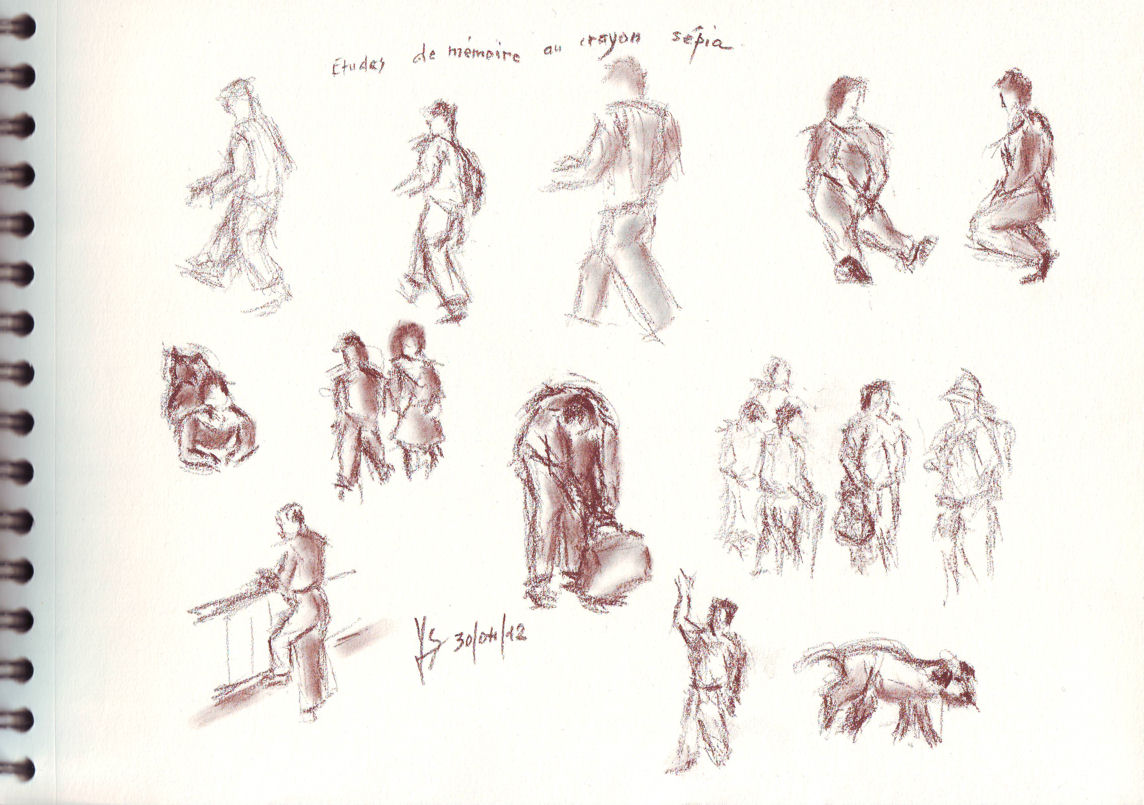 Etudes de mémoire au crayon sépia
YS 30/04/12